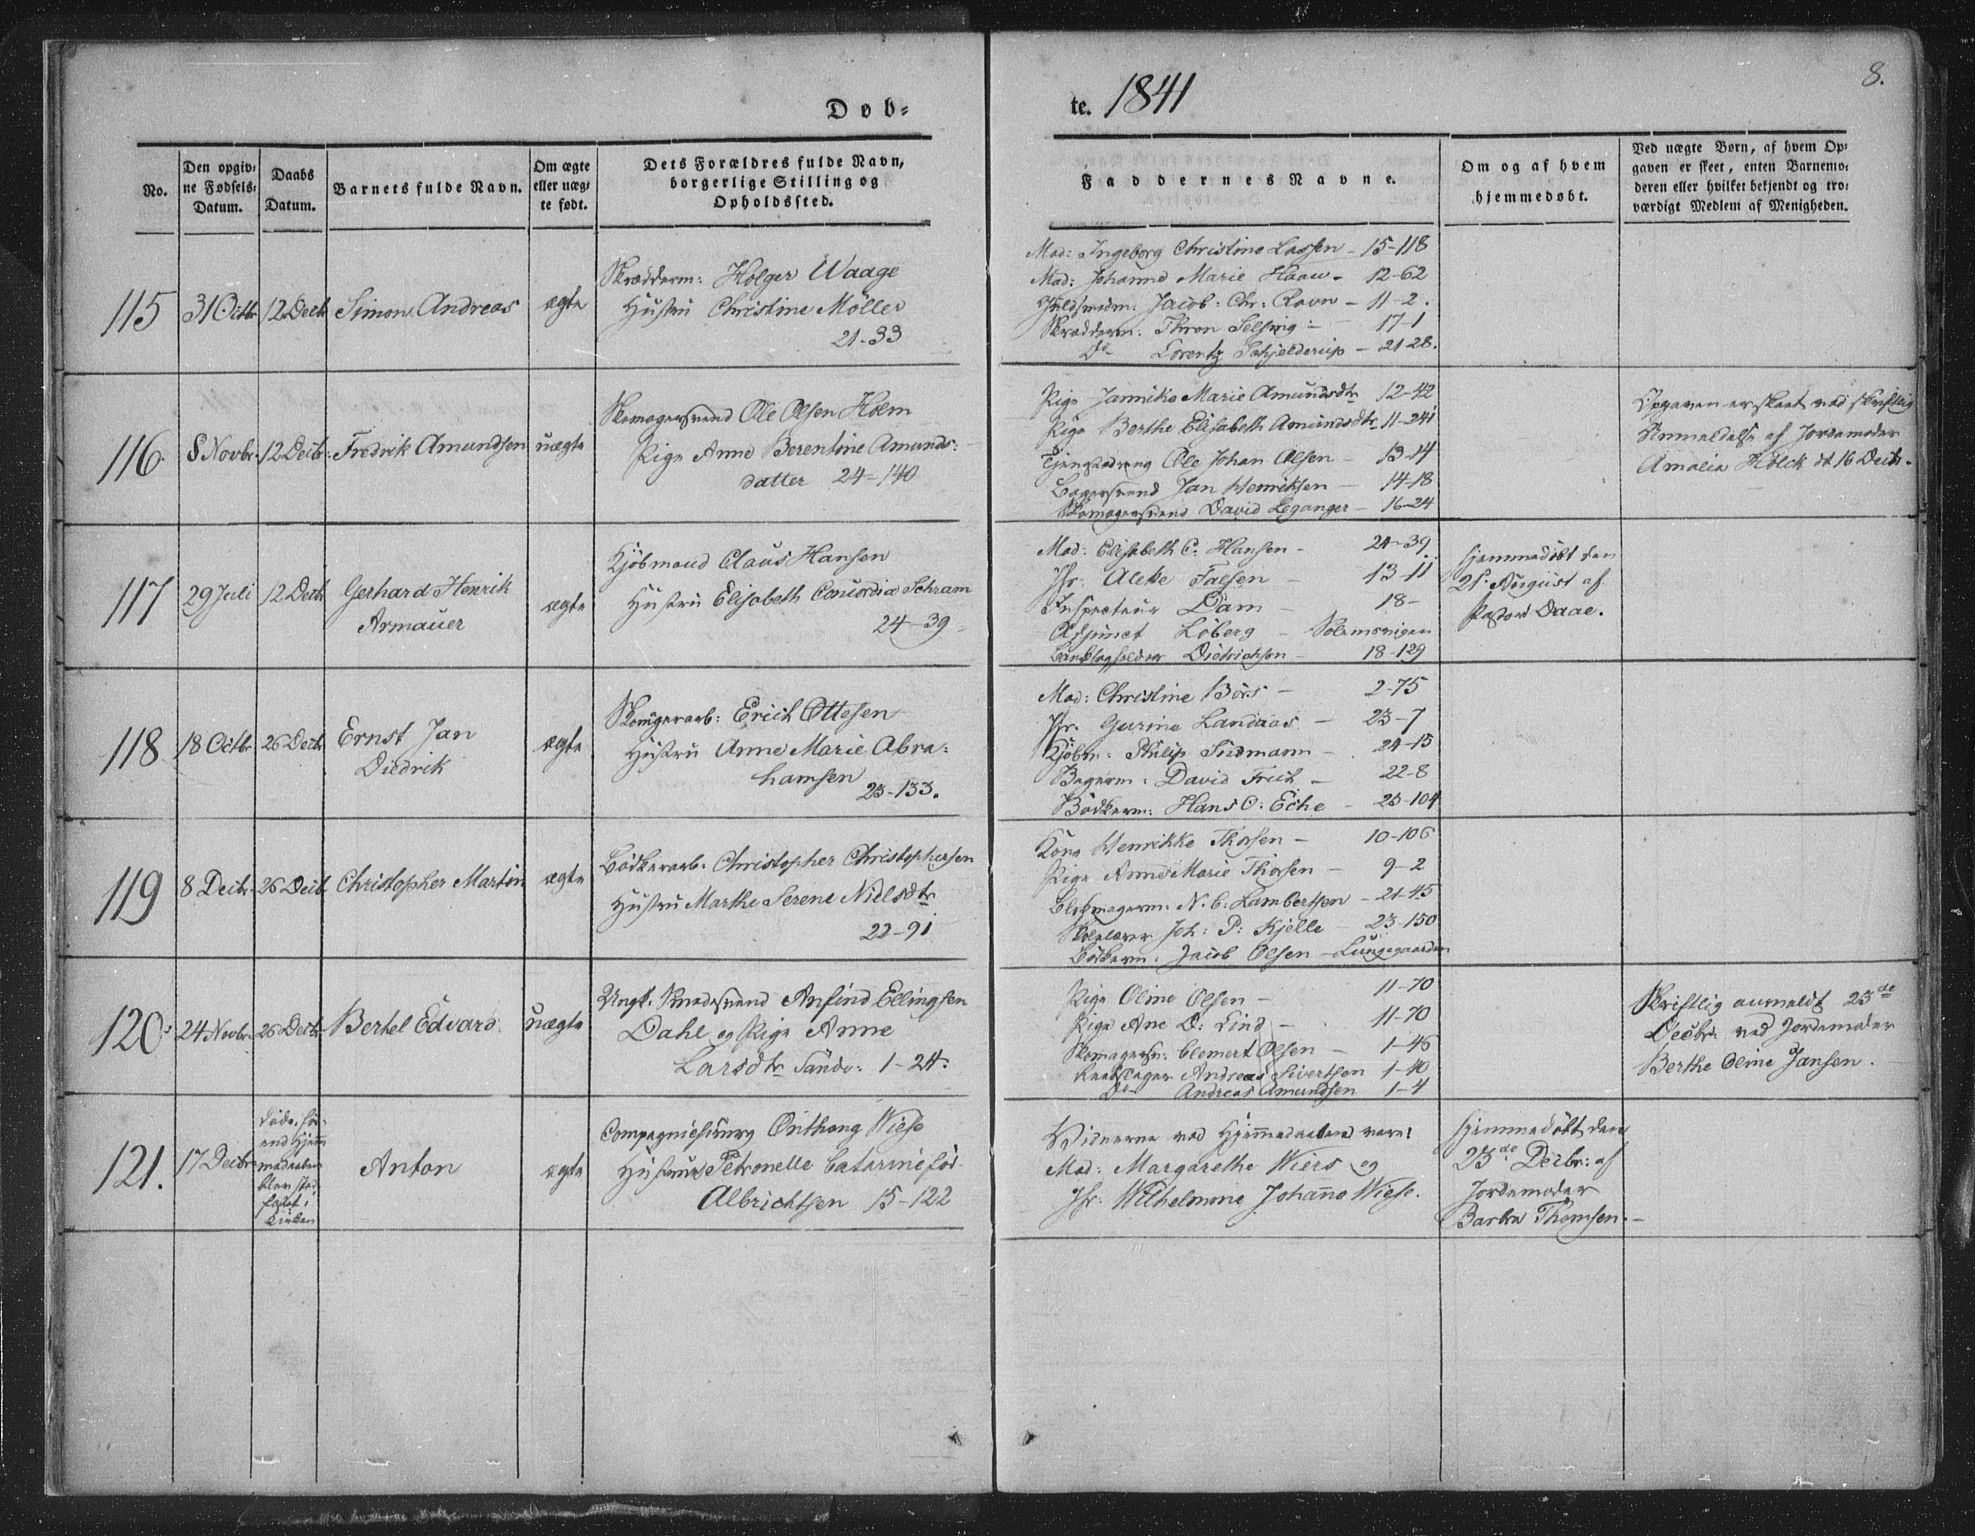 Dob-
te. 1841
8.
No.
Den opgiv-
ne Fødsels-
Datum.
Daabs
Datum.
Barnets fulde Navn.
Om ægte
eller uæg-
te født.
Dets Forældres fulde Navn,
borgerlige Stilling og
Opholdssted.
Faddernes Navne.
Om og af hvem
hjemmedøbt.
Ved uægte Børn, af hvem Op-
gaven er skeet, enten Barnemo-
deren eller hvilket bekjendt og tro-
værdigt Medlem af Menigheden.
115
31 Octbr
12 Decbr
Simon Andreas
ægte
Skrædderm: Holger Waage
Hustru Christine Möller
21-33
Mad: Ingeborg Christine Lassen - 15-118
Mad: Johanne Marie Haaw - 12-62
Guldsmedm: Jacob Chr: Ravn - 11-2.
Skrædderm: Thron Selsing - 17-1
Do Lorentz Schjelderup - 21-28.
116
8 Novbr.
12 Decbr.
Fredrik Amundsen
uægte
Skomagersvend Ole Olsen Holm
Pige Anne Berentine Amunds-
datter 24-140
Pige Jannike Marie Amundsdtr 12-42
Pige Berthe Elisabeth Amundsdtr 11-241
Tjenstedreng Ole Johan Olsen - 13-14
Bagersvend Jan Henriksen - 14-18
Skomagersvend David Leganger - 16-24
Opgaven er skeet ved skriftlig
Anmeldelse af Jordemoder
Amalia Holck dt 16 Decbr.
117
29 Juli
12 Decbr
Gerhard Henrik
Armauer
ægte
Kjøbmand Claus Hansen
Hustru Elisabeth Concordia Schram
24-39
Mad: Elisabeth C. Hansen - 24-39
Jfr: Aleke Falsen - 13-11
Inspecteur Dam - 18-
Adjunct Löberg - Solemsvigen
Dietrichsen - 18-129
Hjemmedöbt den
21 August af
Pastor Daae.
118
18 Octbr
26 Decbr
Ernst Jan
Diedrik
ægte
Erich Ottesen
Hustru Anne Marie Abra-
hamsen
23-133.
Mad: Christine Börs - 2-75
Jfr. Gurine Landaas - 23-7
Kjöbm: Philip Sudmann - 24-15
Bagerm: David Frich - 22-8
Bödkerm: Hans O: Eche - 23-104
119
8 Decbr.
26 Decbr
Christopher Martin
ægte
Bödkerarb: Christopher Christophersen
Hustru Marthe Serene Nielsdtr
22-91
Kone Henrikke Thorsen - 10-106
Pige Anne Marie Thorsen - 9-2
Blokmagerm: N. C: Lambertsen - 21-45
Skolelærer Joh: P: Kjelle - 23-150
Bödkerm: Jacob Olsen - Lungegaarden
120
24 Novbr.
26 Decbr
Bertel Edvard
uægte
Ungk. Smedesvend Anfind Ellingsen
Dahl og Pige Anne
Larsdtr Sandv: 1-24.
Pige Oline Olsen - 11-70
Pige Ane D: Lind - 11-70
Skomagersv: Clemert Olsen - 1-46
Andreas Sivertsen 1-40
Do Andreas Amundsen 1-4
Skriftlig anmeldt 23de
Decbr: ved Jordemoder
Berthe Oline Jansen.
121.
17 Decbr
Anton
ægte
Compagniechirurg Wiese
Hustru Petronelle Catarine föd
Albrichtsen 15-122
Vidnerne ved Hjemmedaaben vare:
Mad: Margarethe Wiers og
Jfr: Wilhelmine Johanne Wiese.
Hjemmedöbt den
23de Decbr: af
Jordemoder
Barbra Thomsen.